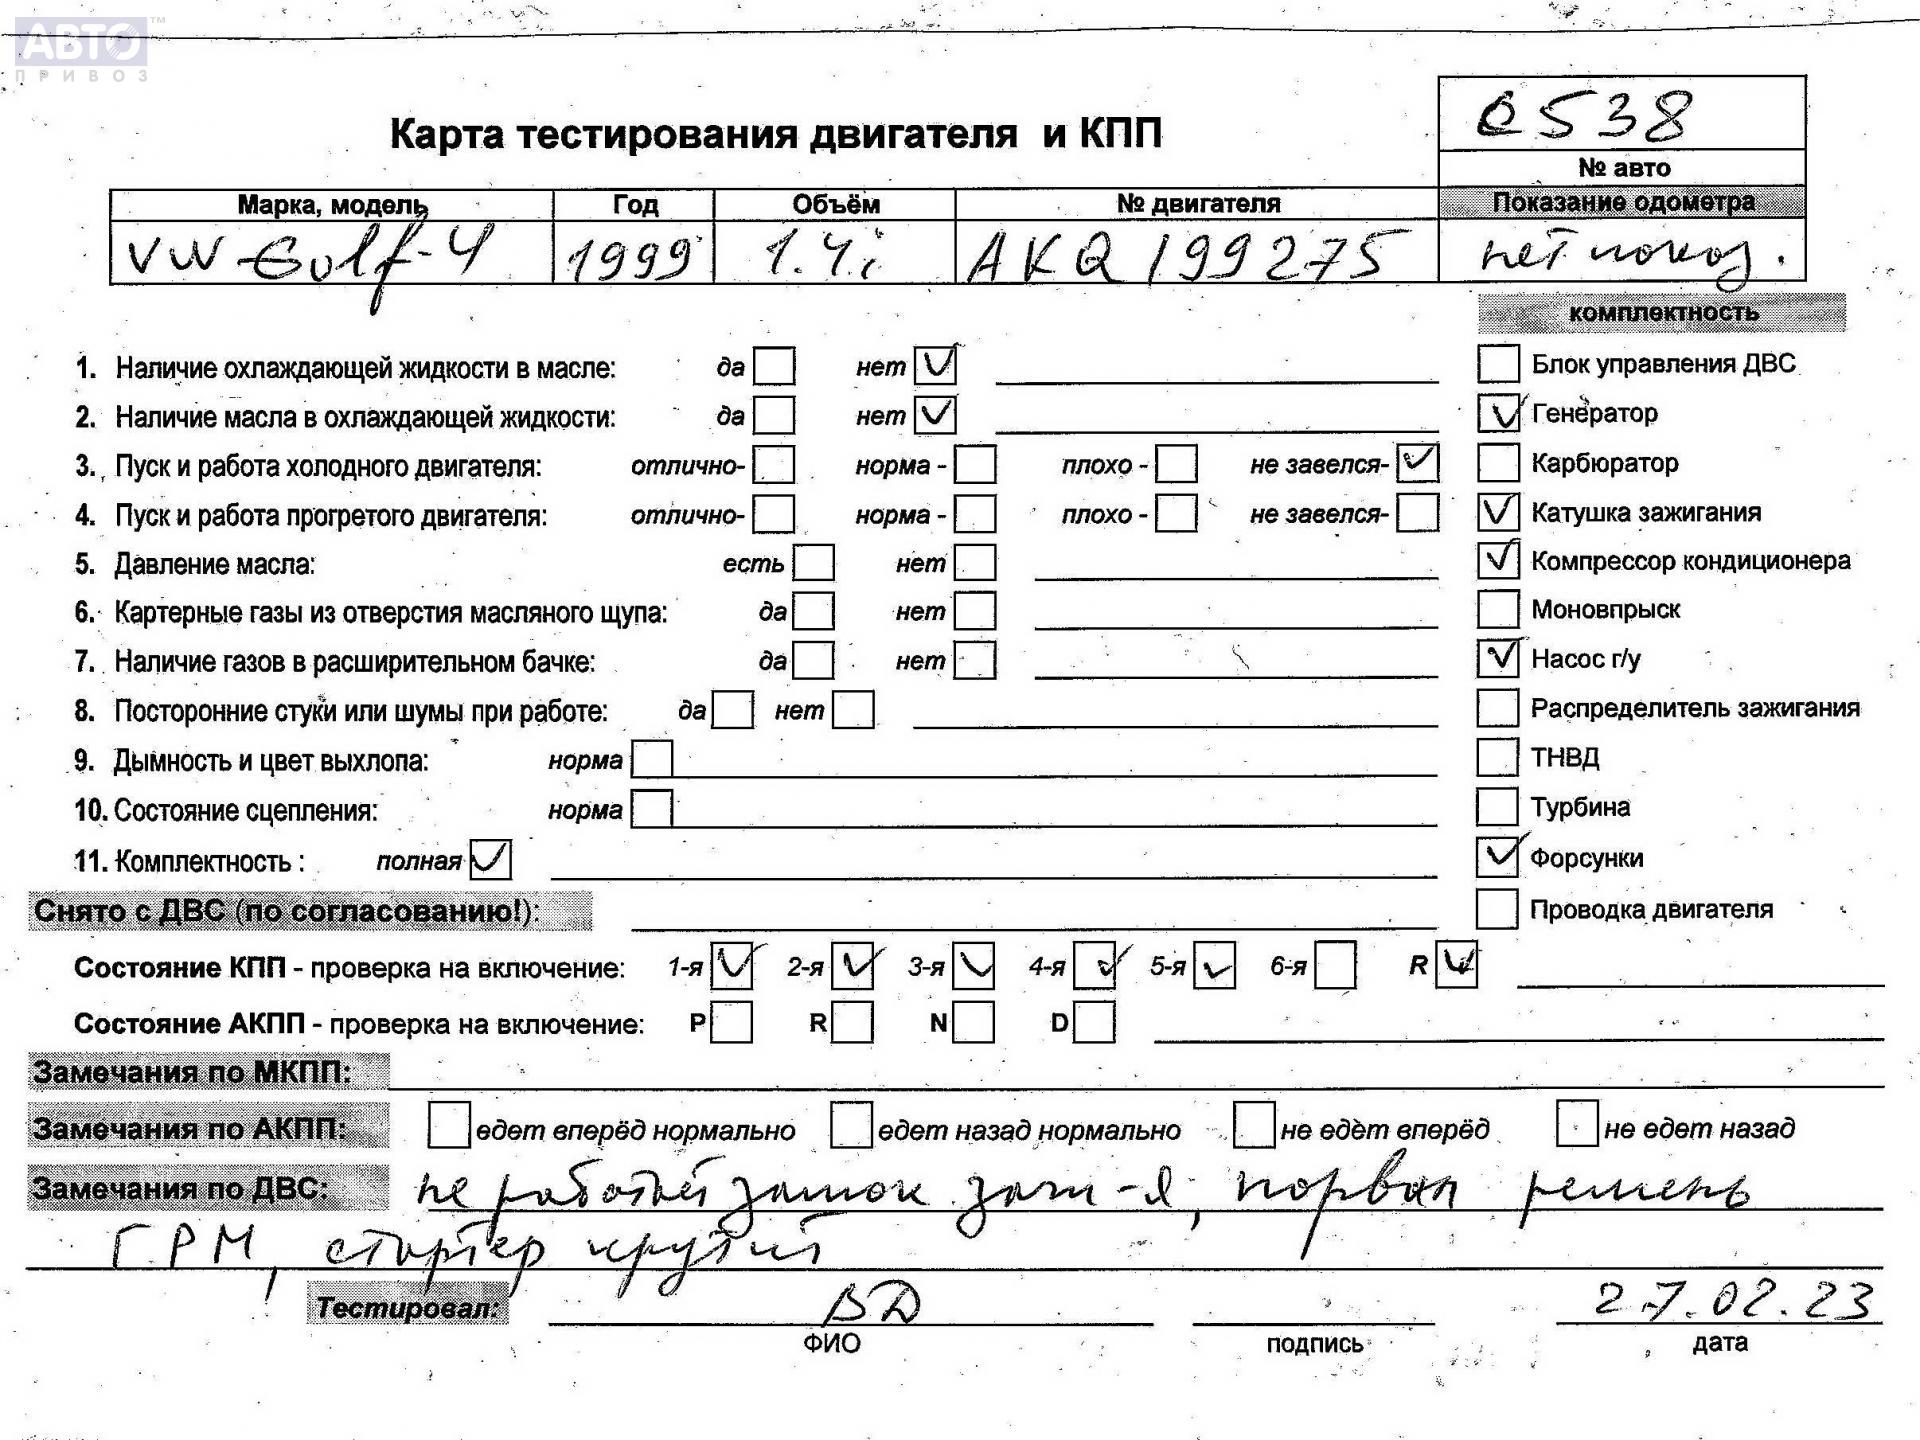 АВТО™
ПРИВОЗ
Карта тестирования двигателя и КПП
538
№ авто
Марка, модель Год Объём № двигателя Показание одометра
VW Golf-4 1999 1.4i AKQ 199275 нет показ.
комплектность
1. Наличие охлаждающей жидкости в масле: да нет Блок управления ДВС
2. Наличие масла в охлаждающей жидкости: да нет Генератор
3. Пуск и работа холодного двигателя: отлично- норма - плохо - не завелся- Карбюратор
4. Пуск и работа прогретого двигателя: отлично- норма - плохо - не завелся- Катушка зажигания
5. Давление масла: есть нет Компрессор кондиционера
6. Картерные газы из отверстия масляного щупа: да нет Моновпрыск
7. Наличие газов в расширительном бачке: да нет Насос г/у
8. Посторонние стуки или шумы при работе: да нет Распределитель зажигания
9. Дымность и цвет выхлопа: норма ТНВД
10. Состояние сцепления: норма Турбина
11. Комплектность : полная Форсунки
Снято с ДВС (по согласованию!): Проводка двигателя
Состояние КПП - проверка на включение: 1-я 2-я 3-я 4-я 5-я 6-я R
Состояние АКПП - проверка на включение: P R N D
Замечания по МКПП:
Замечания по АКПП: едет вперёд нормально едет назад нормально не едет вперёд не едет назад
Замечания по ДВС: не работает замок заж-я, порван ремень
ГРМ, стартер крутит
Тестировал: ВД 27.02.23
ФИО подпись дата